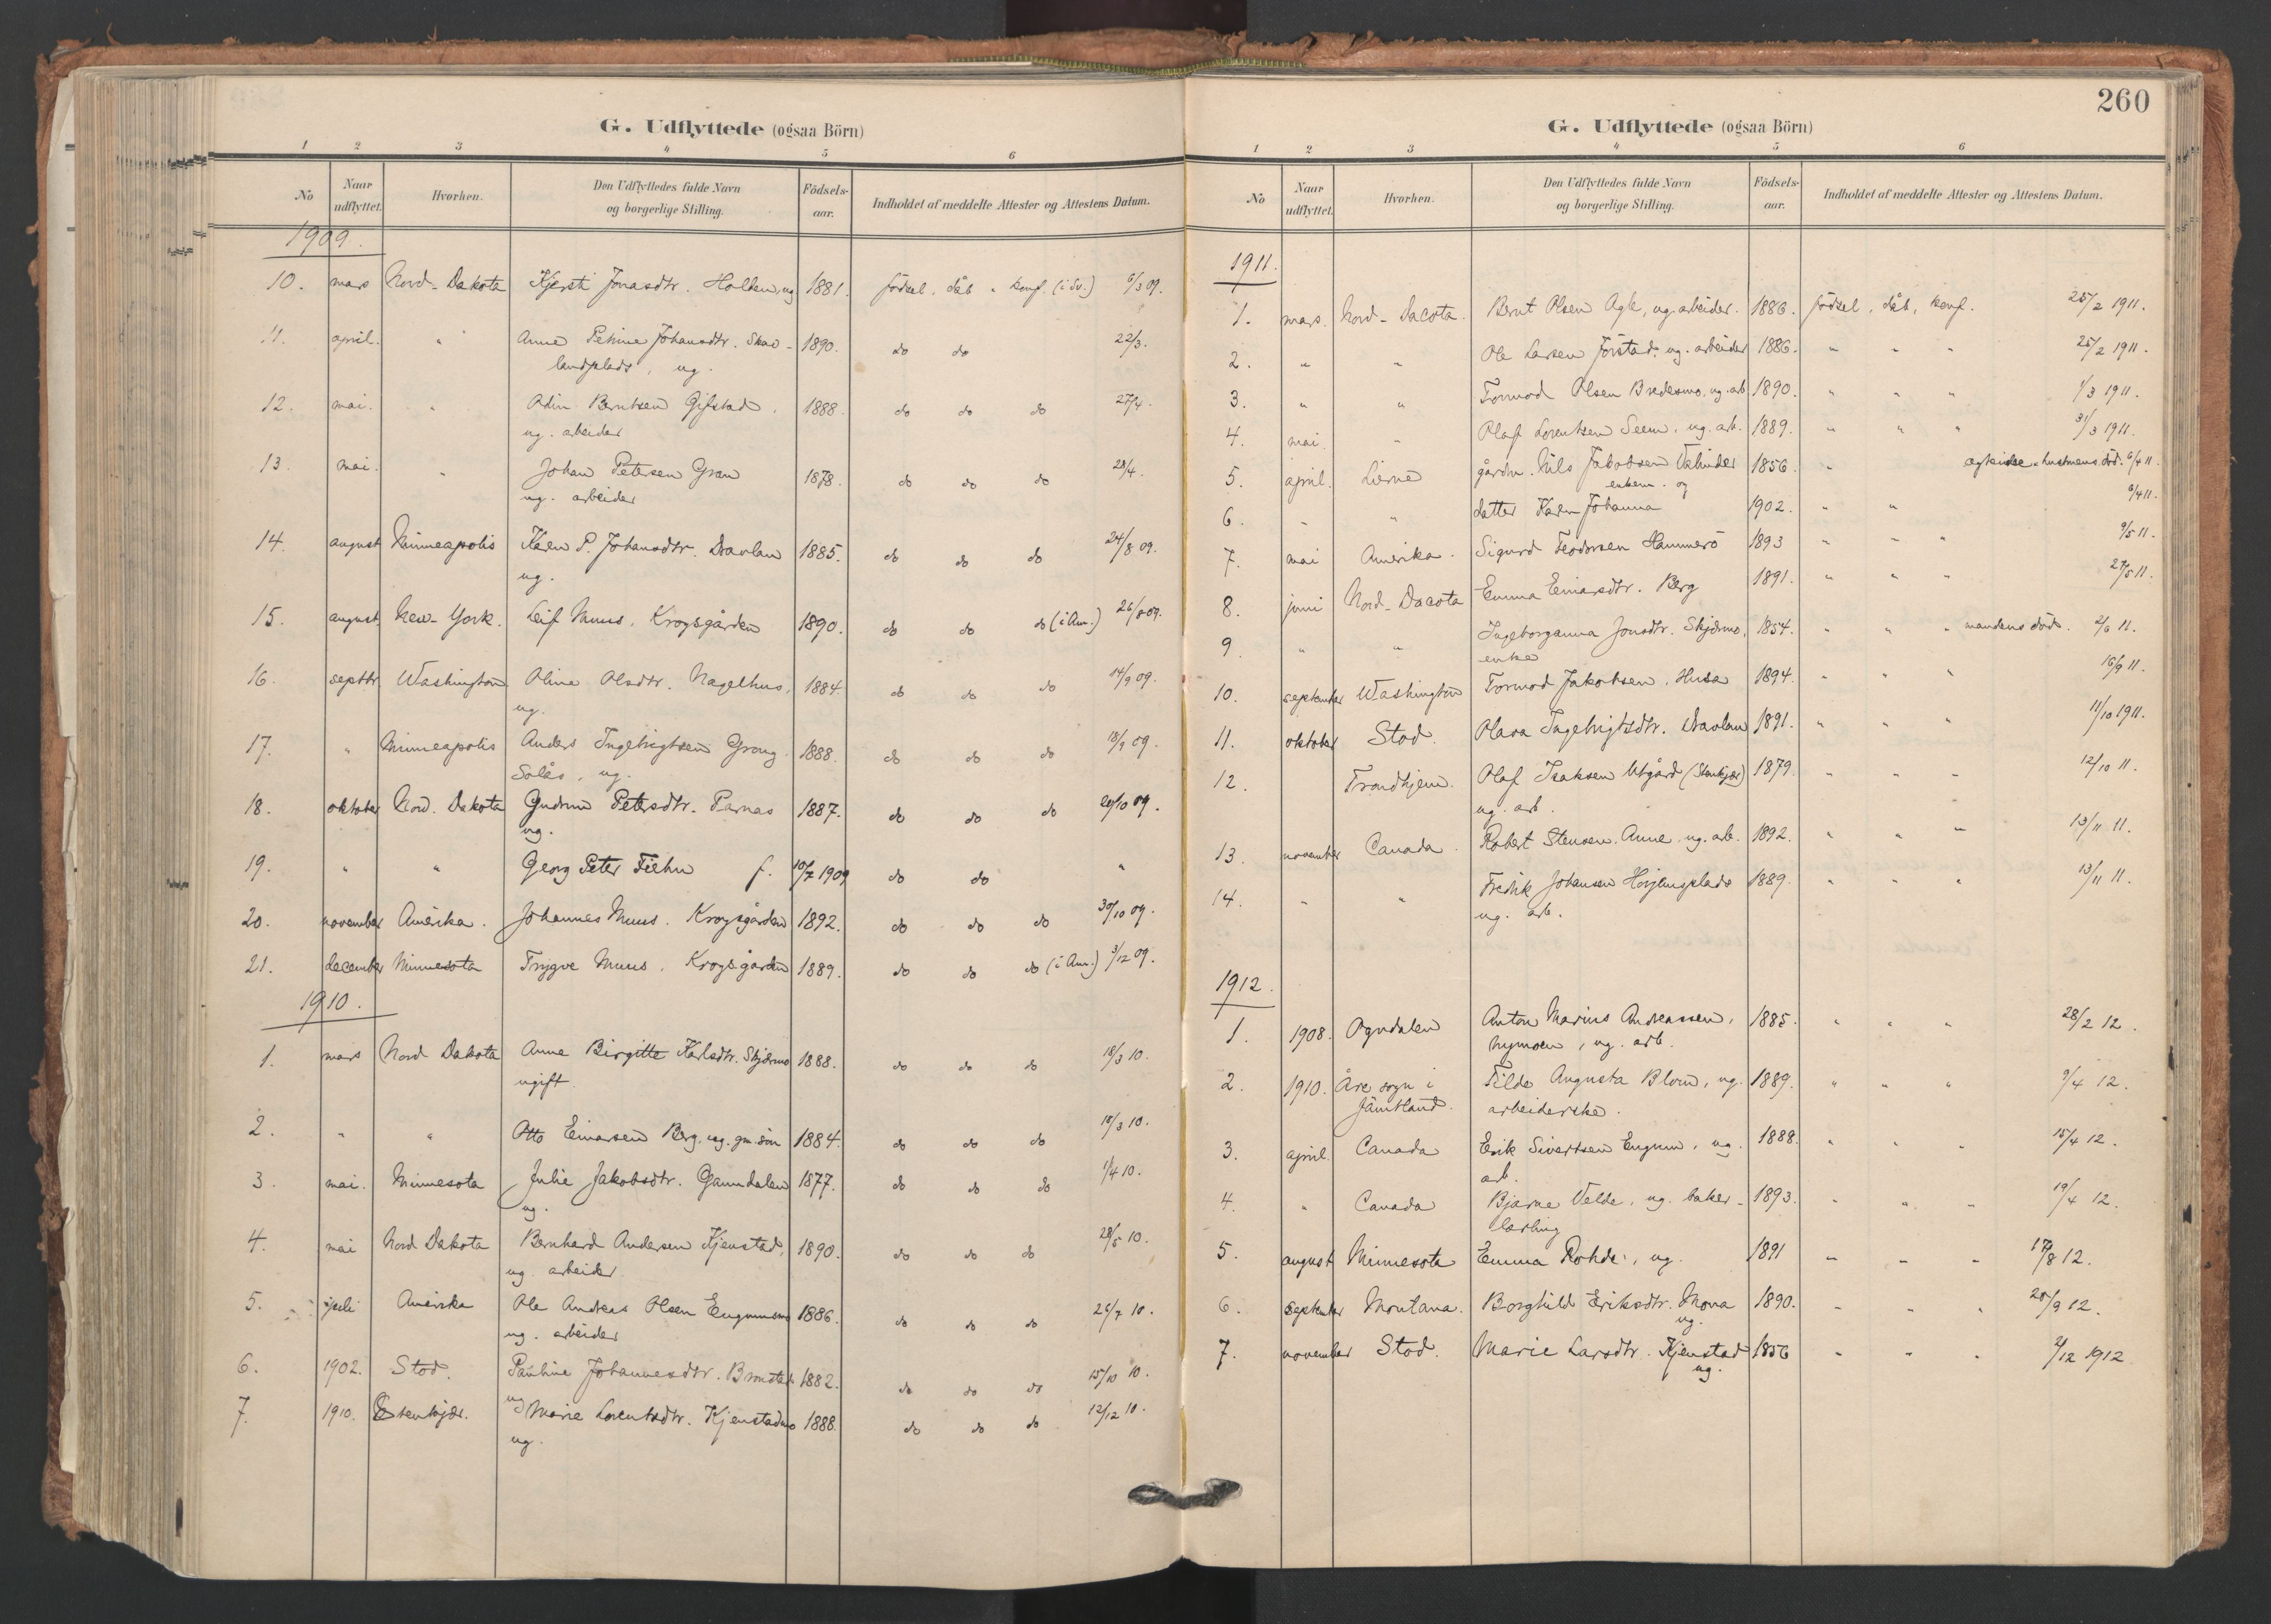 G. Udflyttede (ogsaa Börn)
1 2 3 4 5 6
No Naar udflyttet. Hvorhen. Den Udflyttedes fulde Navn og borgerlige Stilling. Födsels-aar. Indholdet af meddelte Attester og Attestens Datum.
1909.
10. mars Nord-Dakota Kjersti Jonasdtr. Holden, ug 1881. födsel. dåb " konf. (i Sv.) 6/3 09.
11. april. " Anne Petrine Johansdtr. Skav- 1890. do do 22/3.
landsplads, ug.
12. mai. " Odin Berntsen Gifstad, 1888. do do do 27/4.
ug. arbeider
13. mai. " Johan Petersen Gran 1878. do do do 28/4.
ug. arbeider
14. august Minneapolis Karen P. Johansdtr. Davlan 1885. do do do 24/8 09.
ug.
15. august New-York. Leif Muus, Krogsgården 1890. do do do (i Am.) 26/8 09.
16. septbr. Washington Oline Olsdtr. Nagelhus, 1884. do do do 14/9 09.
ug.
17. " Minneapolis Anders Ingebrigtsen Grong 1888. do do do 18/9 09.
Solås, ug.
18. oktober Nord. Dakota Gudrun Petersdtr. Parnas 1887. do do do 20/10 09.
ug.
19. " " Georg Peter Tiehn f. 10/7 1909 do do "
20. november Amerika. Johannes Muus. Krogsgården 1892. do do do 30/10 09.
21. december Minnesota Trygve Muus. Krogsgården 1889. do do do (i Am.) 3/12 09.
1910.
1. mars Nord Dakota Anna Birgitte Karlsdtr. Skjærmo 1888. do do do 18/3 10.
ugift
2. " " Otto Einarsen Berg, ug. gm. sön 1884. do do do 18/3 10.
3. mai. Minnesota Julie Jakobsdtr. Gaundalen 1877. do do do 1/4 10.
ug.
4. mai Nord Dakota Bernhard Andersen Kjenstad, 1890. do do do 28/5 10.
ug. arbeider
5. juli Amerika Ole Andreas Olsen Engummo 1886. do do do 26/7 10.
ug. arbeider
6. 1902. Stod. Pauline Johannesdtr. Brustad 1882. do do do 15/10 10.
ug
7. 1910. Stenkjær. Marie Lorentsdtr. Kjenstadmo 1888. do do do 12/12 10.
ug.
260
G. Udflyttede (ogsaa Börn)
1 2 3 4 5 6
No Naar udflyttet. Hvorhen. Den Udflyttedes fulde Navn og borgerlige Stilling. Födsels-aar. Indholdet af meddelte Attester og Attestens Datum.
1911.
1. mars. Nord-Dacota. Bernt Olsen Agle, ug. arbeider. 1886. födsel, dåb, konf. 25/2 1911.
2. " " Ole Larsen Jörstad. ug. arbeider 1886. " " " 25/2 1911.
3. " " Tormod Olsen Bredesmo, ug. arb 1890. " " " 1/3 1911.
4. mai. " Olaf Lorentsen Seem, ug. arb. 1889. " " " 31/3 1911.
5. april. Lierne gårdm. Nils Jakobsen 1856. " dåd. 6/4 11.
enkem. og
6. " " datter Karen Johanna 1902. " " 6/4 11.
7. mai Amerika. Sigurd Teodorsen Hammerö 1893 " " " 9/5 11.
8. juni Nord-Dacota Emma Einarsdtr. Berg 1891. " " " 27/5 11.
9. " " Ingeborganna Jonsdtr. Skjærmo, 1854. " " " mandens död. 2/6 11.
enke
10. september Washington Tormod Jakobsen, Husa 1894. " " " 16/9 11.
11. oktober Stod. Olava Ingebrigtsdtr. Davlan 1891. " " " 11/10 1911.
12. Trondhjem. Olaf Isaksen Utgård (Stenkjær) 1879. " " " 12/10 11.
ug. arb.
13. november Canada. Robert Stensen. Aune, ug. arb. 1892. " " " 13/11 11.
14. " " Fredrik Johansen Höylensplads 1889. " " " 13/11 11.
ug. arb.
1912.
1. 1908. Ogndalen Anton Marius Andreassen, 1885. " " " 28/2 12.
Nymoen, ug. arb.
2. 1910. Åre sogn i Tilde Augusta Blom, ug. 1889. " " " 9/4 12.
Jämtland. arbeiderske.
3. april. Canada Erik Sivertsen Engum, ug. 1888. " " " 15/4 12.
arb.
4. " Canada Bjarne Velde, ug. baker- 1893. " " " 19/4 12.
lærling
5. august Minnesota Emma Rohde, ug. 1891 " " " 17/8 12.
6. september Montana. Borghild Eriksdtr. Mona 1890. " " " 20/9 12.
ug.
7. november Stod. Marie Larsdtr. Kjenstad 1856 " " " 2/12 1912
ug.